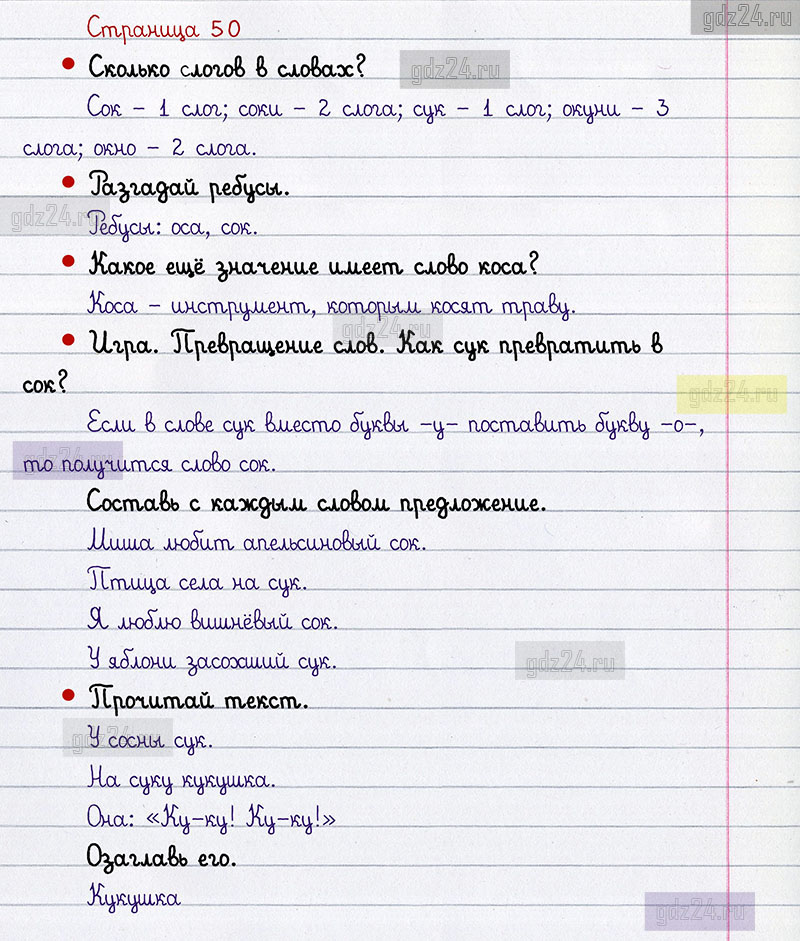 Страница 50
gdz24.ru
• Сколько слогов в словах?
gdz24.ru
Сок – 1 слог; соки – 2 слога; сук – 1 слог; окуни – 3
слога; окно – 2 слога.
• Разгадай ребусы.
gdz24.ru
Ребусы: оса, сок.
• Какое ещё значение имеет слово коса?
Коса – инструмент, которым косят траву.
gdz24.ru
• Игра. Превращение слов. Как сук превратить в
сок?
gdz24.ru
Если в слове сук вместо буквы –у– поставить букву –о–,
то получится слово сок.
gdz24.ru
Составь с каждым словом предложение.
Миша любит апельсиновый сок.
Птица села на сук.
Я люблю вишнёвый сок.
У яблони засохший сук.
gdz24.ru
• Прочитай текст.
У сосны сук.
gdz24.ru
На суку кукушка.
Она: «Ку-ку! Ку-ку!»
Озаглавь его.
Кукушка
gdz24.ru